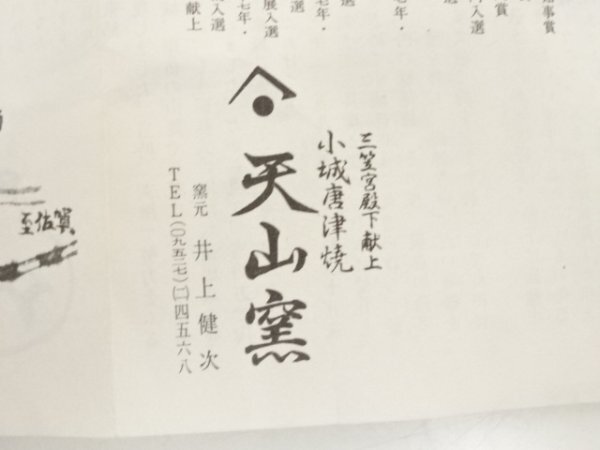 事賞
入選
賞
選
七年・
選
七年・
選
展入選
七年・
入選
献上
三笠宮殿下献上
小城唐津焼
天山窯
窯元 井上健次
TEL(〇九五二七)(二)四五六八
至佐賀